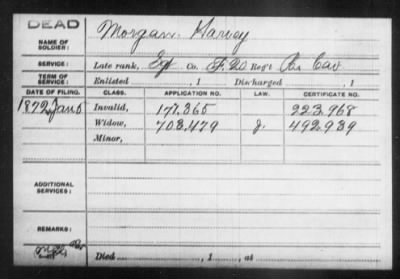 DEAD
NAME OF SOLDIER: Morgan, Harvey
SERVICE: Late rank, Co. F. 20 Reg't Pa. Cav
TERM OF SERVICE: Enlisted , 1 Discharged , 1
DATE OF FILING. CLASS. APPLICATION NO. LAW. CERTIFICATE NO.
1872, Jan 5 Invalid, 177.365 223.968
Widow, 703.479 492.939
Minor,
ADDITIONAL SERVICES:
REMARKS:
Died , 1 , at